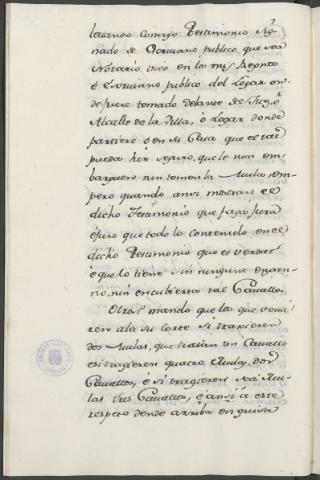 levando consigo Testimonio sig-
nado de Escrivano publico que sea
Notario Vivo en la mis Regno
e Escrivano publico del Logar on-
de fuere tomado delante de Juez, o
Alcalle de la Villa, o Logar donde
partiere o en si Casa que el tal
pueda hir seguro, que le non em-
barguen nin tomen la Mula em-
pero quando ansi mostrare el
dicho Testimonio que faga Jura
que todo lo contenido en el
dicho Testimonio que es verdat
e que lo tiene sin ningunt engan-
no, nin encubierta tal Cavallo.
Otrosi mando que los que veni-
ren a la su Corte si traxieren
dos Mulas, que traian un Cavallo
e si tragieren quatro Mulas, dos
Cavallos, e si tragieren seis Mu-
las tres Cavallos, e ansi a este
respeto dende arriba en guisa